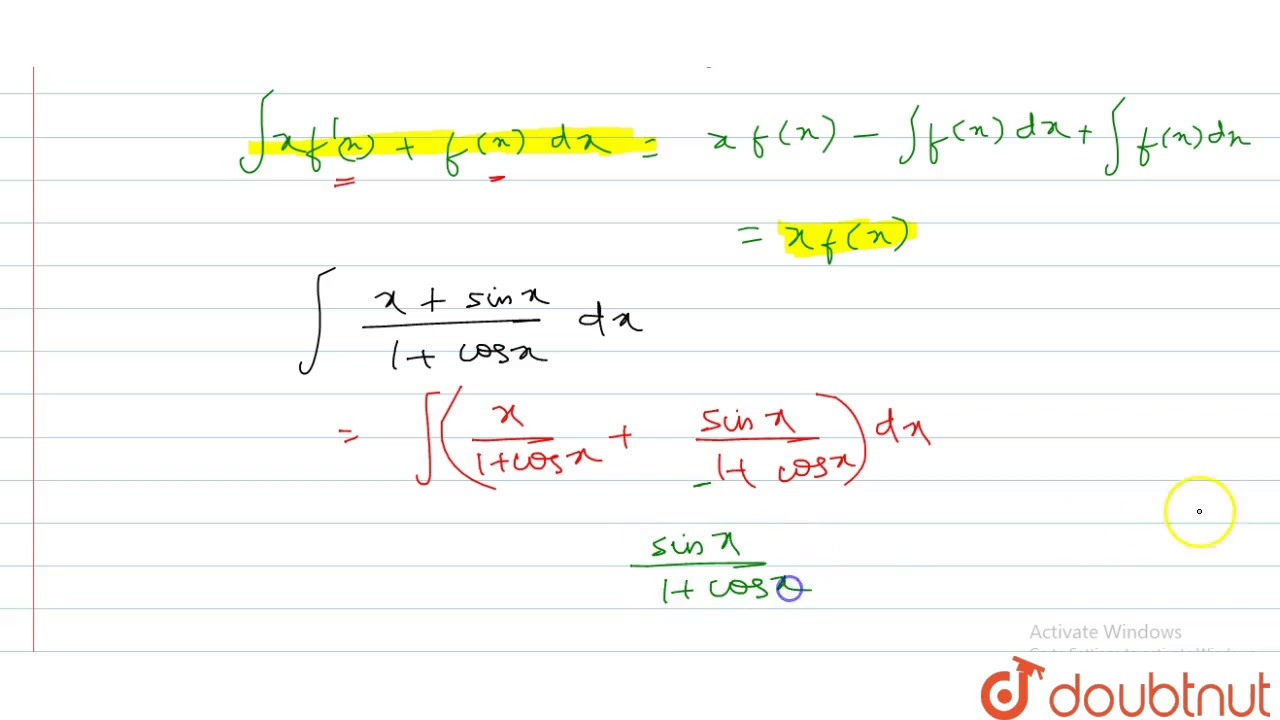 ∫xf'(x) + f(x) dx = x f(x) − ∫f(x) dx + ∫f(x) dx
= x f(x)
∫ (x + sin x)/(1 + cos x) dx
= ∫ ( x/(1+cos x) + sin x/(1+ cos x) ) dx
sin x/(1+ cos x)
Activate Windows
doubtnut